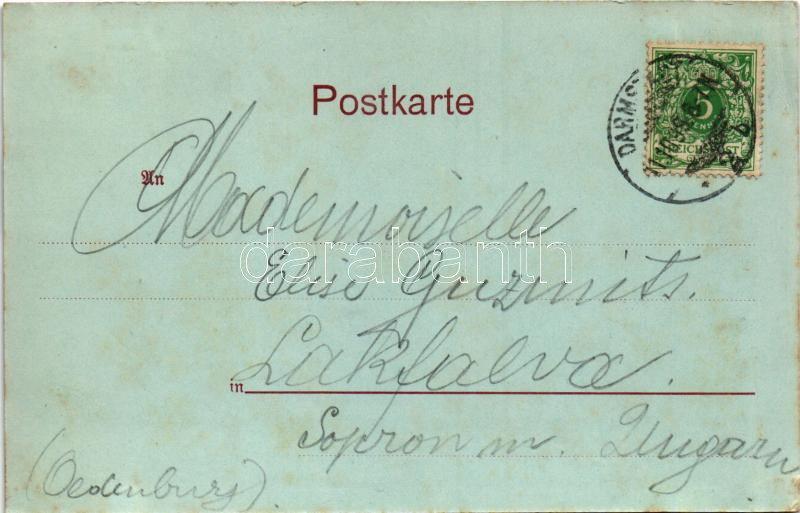 Postkarte
DARMS
5
REICHSPOST
An
Mademoiselle
darabanth
Elise Guzmits.
in Lakfalva.
Sopron m. Ungarn
(Oedenburg).